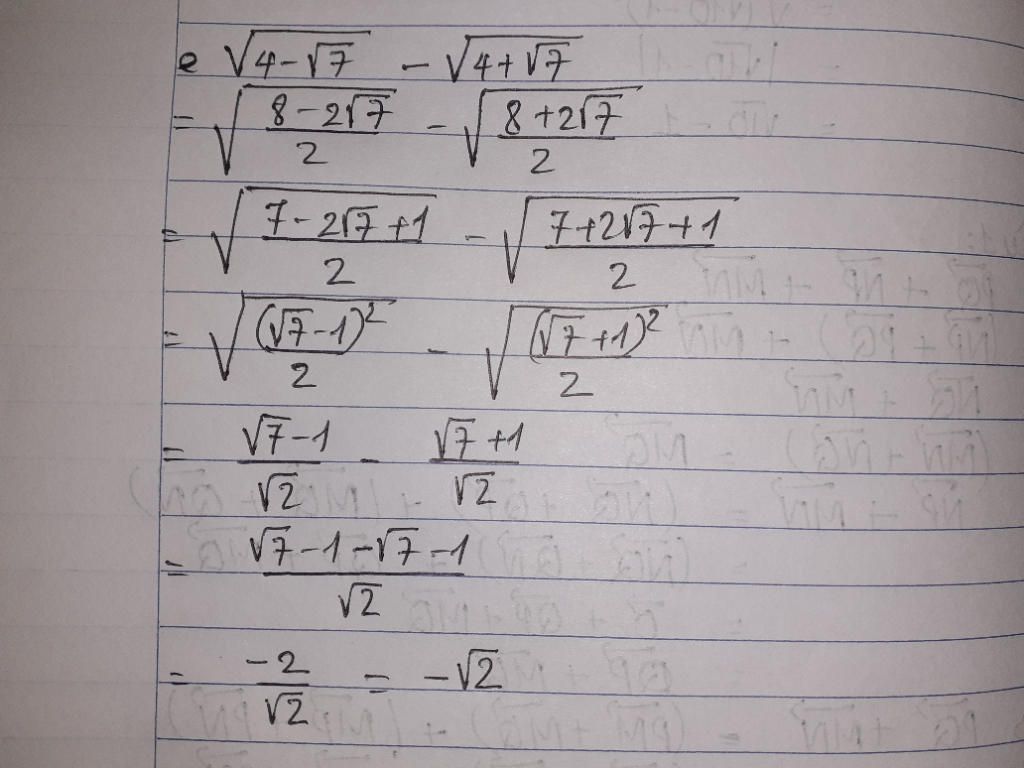 e √(4-√7) - √(4+√7)
= √((8-2√7)/2) - √((8+2√7)/2)
= √((7-2√7+1)/2) - √((7+2√7+1)/2)
= √((√7-1)²/2) - √((√7+1)²/2)
= (√7-1)/√2 - (√7+1)/√2
= (√7-1-√7-1)/√2
= -2/√2 = -√2